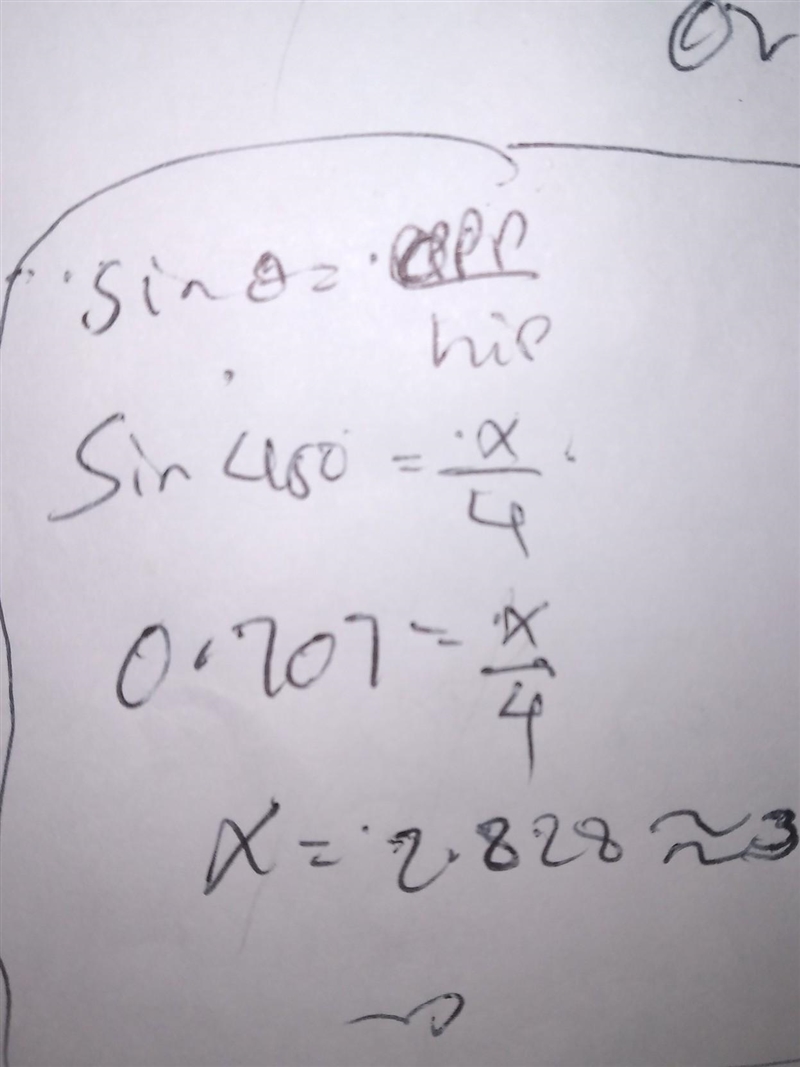 or
sin θ = opp
hip
Sin 450 = x
4
0.707 = x
4
x = 2.828 ≈ 3